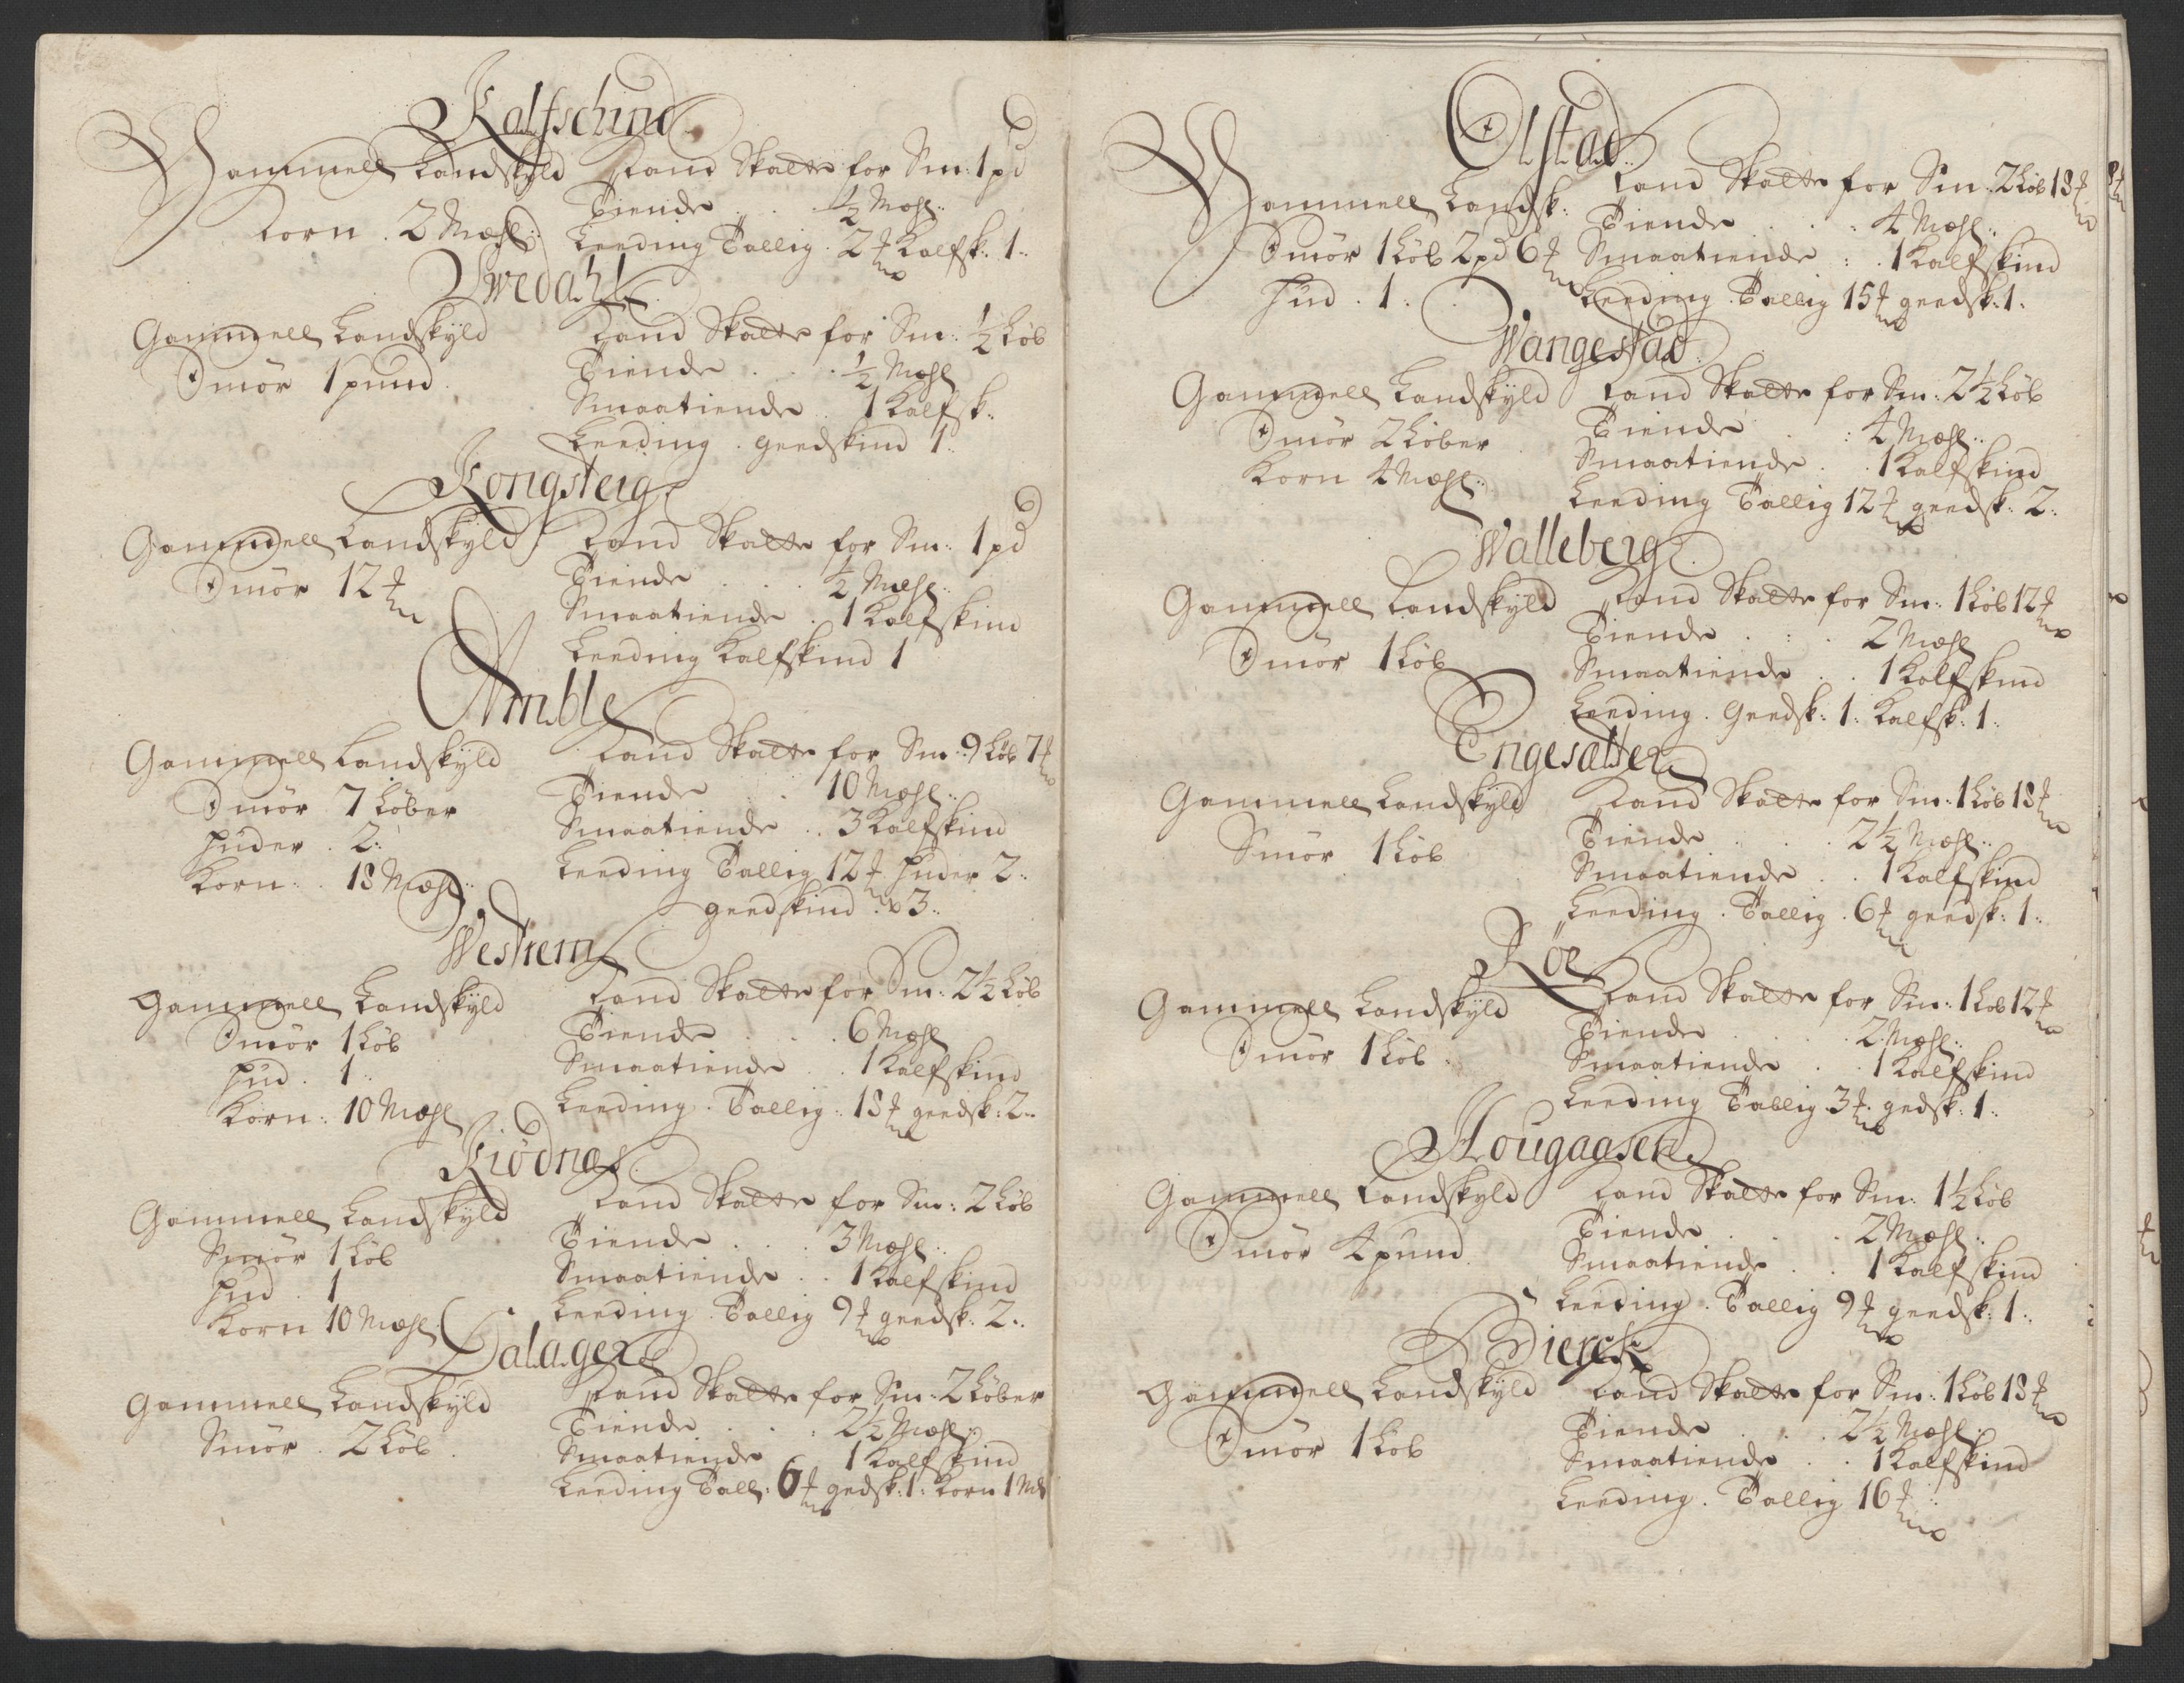 Kalfschind
Gammell Landskyld
Korn . 2 Mæhl:
Land Skatt for Sm: 1 pd
Tiende . . . ½ Mæhl:
Leeding Tallig . 2 ℔ Kalfsk: 1:
Svedahl
Gammell Landskyld
Smör 1 pund.
Land Skatt for Sm: ½ Löb
Tiende . . . ½ Mæhl
Smaatiende . . 1 Kalfsk:
Leeding . geedskind 1:
Kongsteig
Gammell Landskyld
Smör 12 ℔
Land Skatt for Sm: 1 pd
Tiende . . . ½ Mæhl:
Smaatiende . 1 Kalfskind
Leeding Kalfskind 1
Amble
Gammell Landskyld
Smör 7 Löber
Huder . 2:
Korn . . 18 Mæhl:
Land Skatt for Sm: 9 Löb 7 ℔
Tiende . . 10 Mæhl:
Smaatiende . . 3 Kalfskind
Leeding Tallig 12 ℔ Huder 2:
geedskind . 3:
Westrem
Gammell Landskyld
Smör 1 Löb
Hud . 1:
Korn : 10 Mæhl
Land Skatt for Sm: 2½ Löb
Tiende . . . 6 Mæhl
Smaatiende . . 1 Kalfskind
Leeding . Tallig : 18 ℔ geedsk: 2:
Kiödnæs
Gammell Landskyld
Smör 1 Löb
Hud . 1
Korn 10 Mæhl:
Land Skatt for Sm: 2 Löb
Tiende . . . 3 Mæhl:
Smaatiende . . 1 Kalfskind
Leeding . Tallig 9 ℔ geedsk: 2:
Dalager
Gammell Landskyld
Smör . 2 Löb .
Land Skatt for Sm: 2 Löber
Tiende . . . 2½ Mæhl:
Smaatiende 1 Kalfskind
Leeding Tall: 6 ℔ gedsk: 1: Korn 1 Mh
Olstad
Gammell Landsk:
Smör 1 Löb 2 pd 6 ℔
Hud . 1 .
Land Skatt for Sm: 2 Löb 18 ℔
Tiende . . . 4 Mæhl:
Smaatiende : . 1 Kalfskind
Leeding . Tallig 15 ℔ geedsk: 1.
Wangestad
Gammell Landskyld
Smör 2 Löber
Korn 4 Mæhl:
Land Skatt for Sm: 2½ Löb
Tiende . . : 4 Mæhl:
Smaatiende . . 1 Kalfskind
Leeding Tallig 12 ℔ geedsk: 2:
Walleberg
Gammell Landskyld
Smör 1 Löb
Land Skatt for Sm: 1 Löb 12 ℔
Tiende . : . 2 Mæhl
Smaatiende . . 1 Kalfskind
Leeding . Geedsk: 1: Kalfsk: 1:
Engesætter
Gammell Landskyld
Smör 1 Löb
Land Skatt for Sm: 1 Löb 18 ℔
Tiende . . . 2½ Mæhl:
Smaatiende . . 1 Kalfskind
Leeding . Tallig . 6 ℔ geedsk: 1:
Röe
Gammell Landskyld
Smör 1 Löb .
Land Skatt for Sm: 1 Löb 12 ℔
Tiende . . . 2 Mæhl:
Smaatiende . . 1 Kalfskind
Leeding Tallig 3 ℔ gedsk: 1:
Hougaasen
Gammell Landskyld
Smör 4 pund.
Land Skatt for Sm: 1½ Löb
Tiende . . . 2 Mæhl:
Smaatiende . . 1 Kalfskind
Leeding . Tallig 9 ℔ geedsk: 1:
Bierck
Gammell Landskyld
Smör 1 Löb
Land Skatt for Sm: 1 Löb 18 ℔
Tiende . . . 2½ Mæhl:
Smaatiende . . 1 Kalfskind
Leeding . Tallig 16 ℔ :